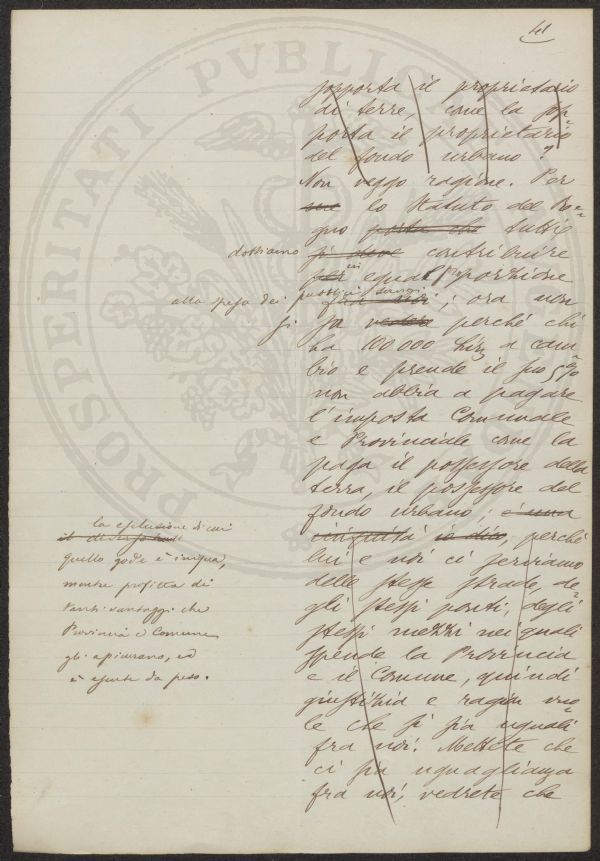 41
sopporta il proprietario
di terre, come la sop=
porta il proprietario
del fondo urbano?
Non veggo ragione. Per
lo Statuto del Re=
gno porta che tutti
dobbiamo si deve contribuire
per in egual proporzione
alla spesa dei pubblici servizi; ora non
si sa vedere perché chi
ha 100 000 Lire a cam
bio e prende il suo 5 %
non abbia a pagare
l'imposta Comunale
e Provinciale come la
paga il possessore della
terra, il possessore del
fondo urbano; è una
iniquità io dico, perché
lui e noi ci serviamo
delle stesse strade, de=
gli stessi ponti, degli
stessi mezzi nei quali
spende la Provincia
e il Comune, quindi
giustizia e ragion vuo
le che si sia uguali
fra noi. Mettete che
ci sia uguaglianza
fra noi, vedrete che
la esclusione di cui
quello gode è iniqua,
mentre profitta dei
tanti vantaggi che
Provincia e Comune
gli apicurano, ed
è esente da peso.
PROSPERITATI PUBLICAE